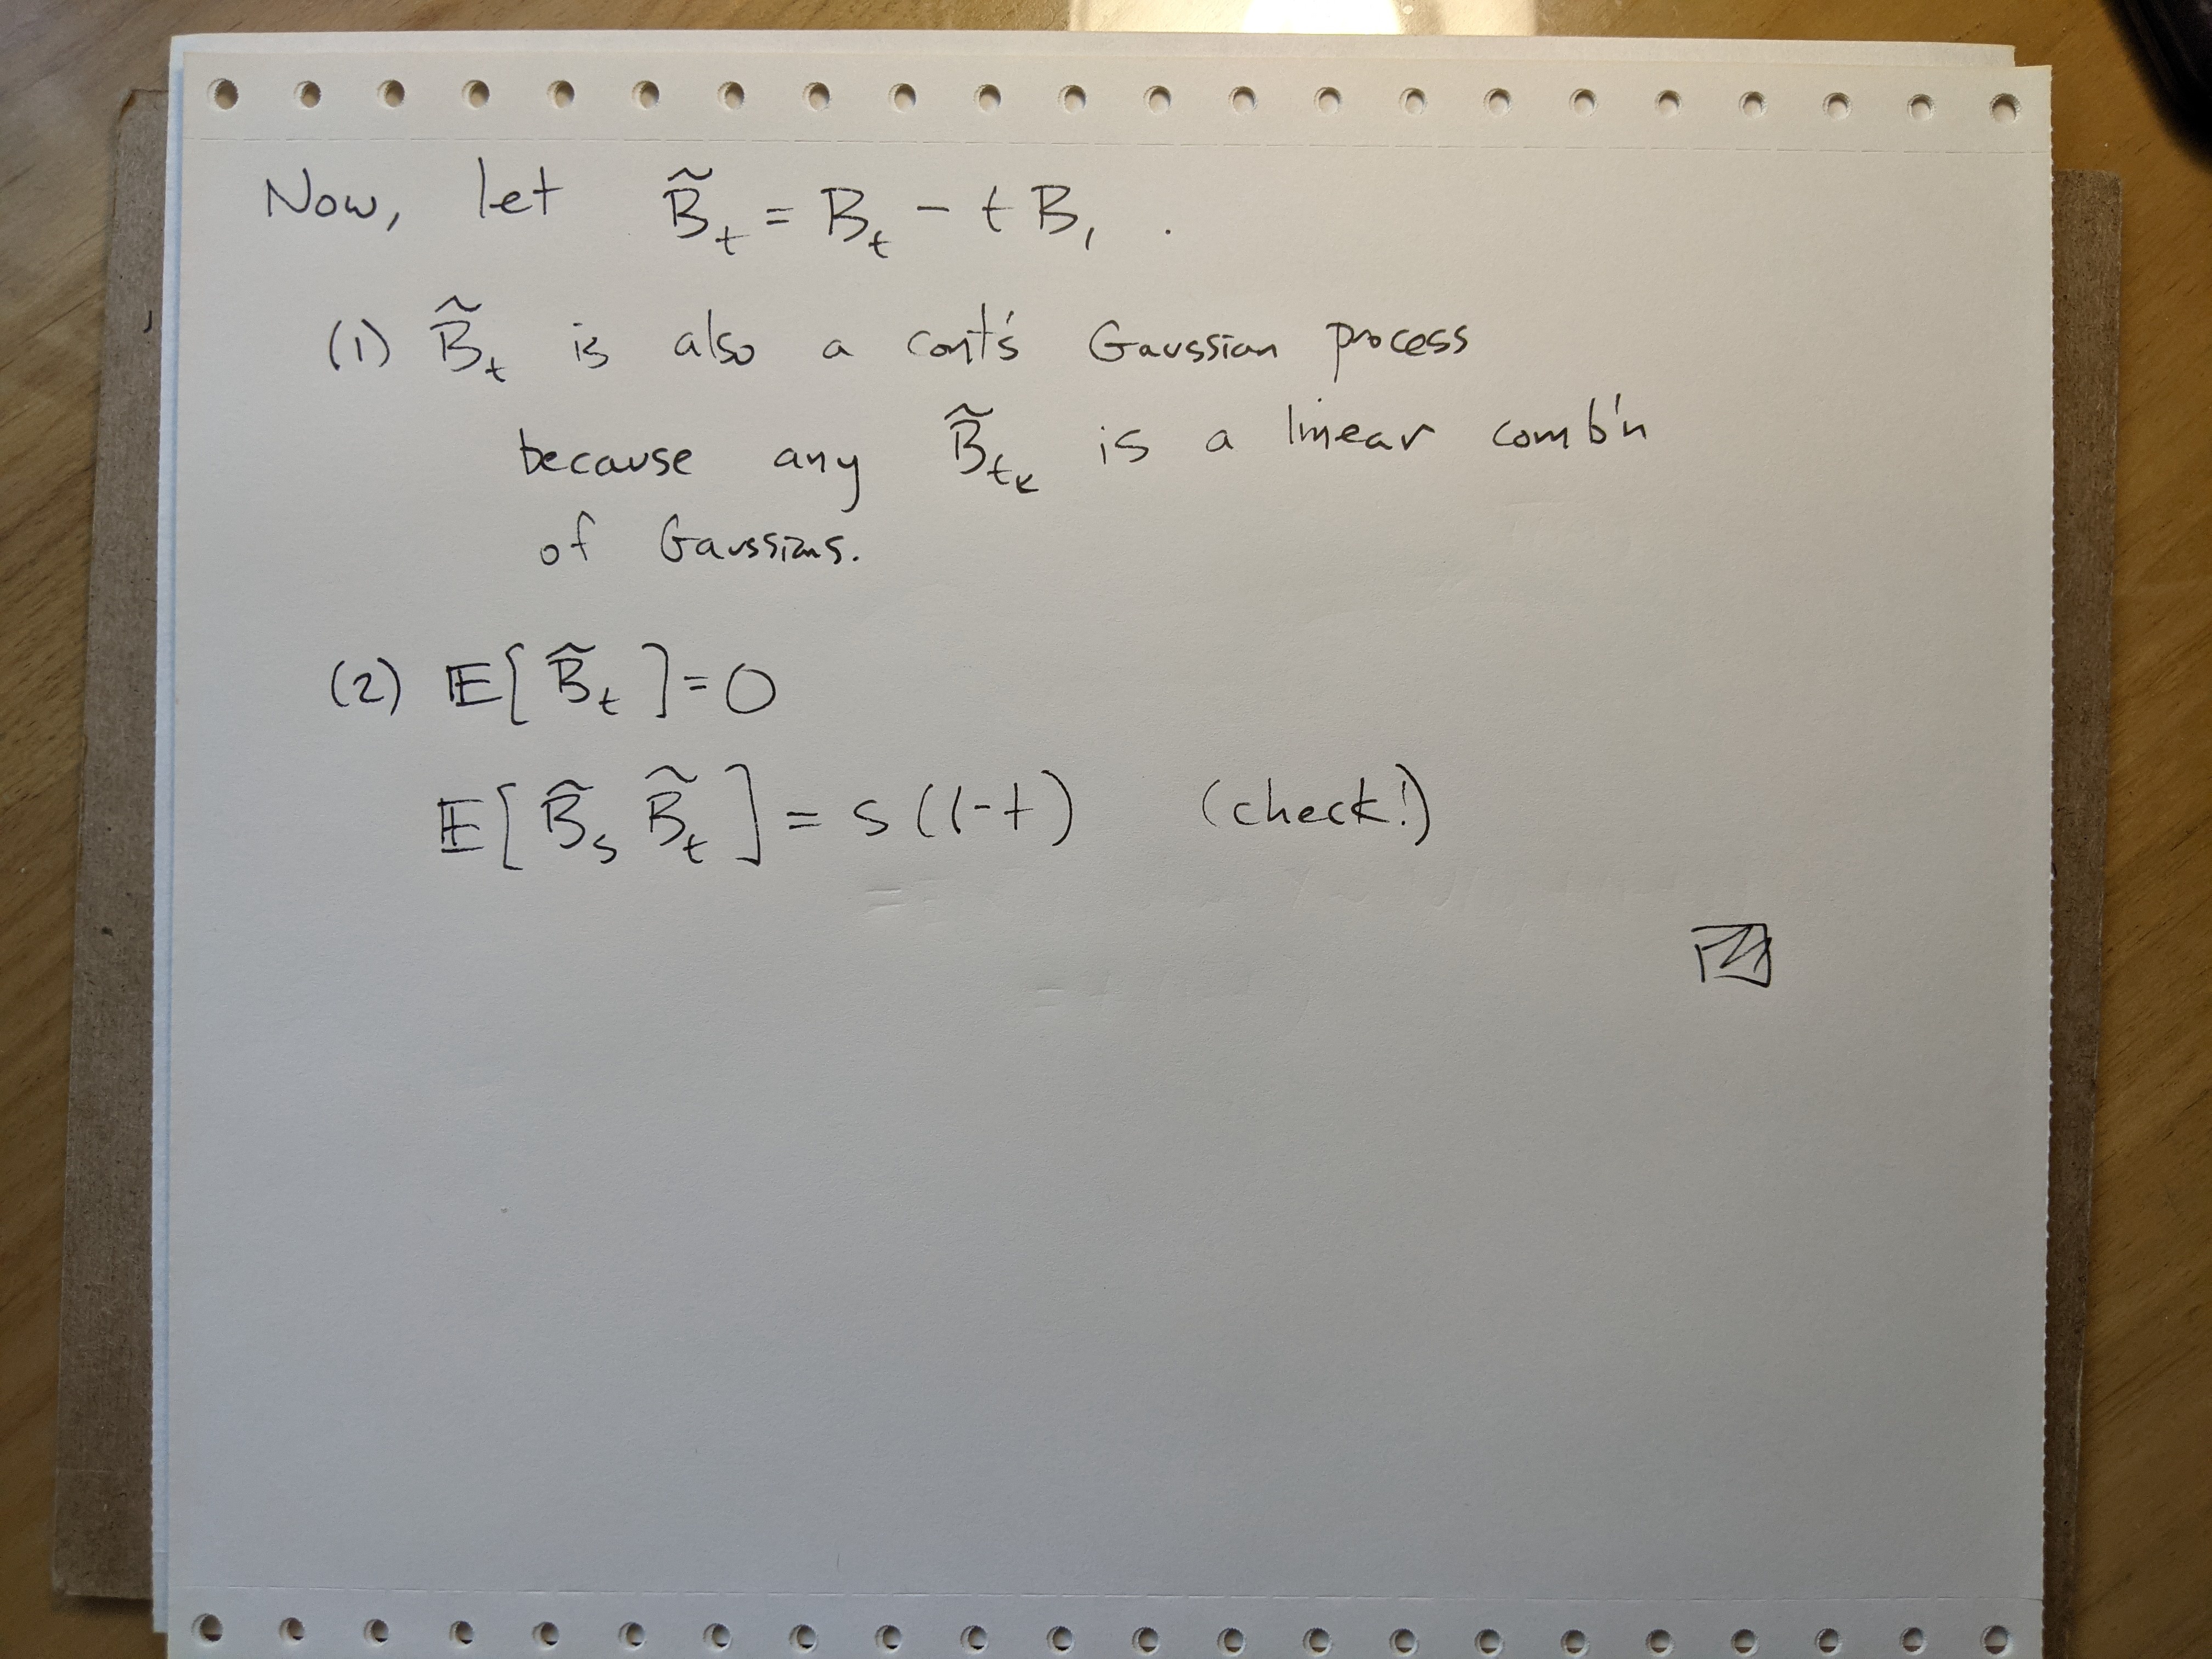 Now, let B̃_t = B_t - t B_1 .
(1) B̃_t is also a cont's Gaussian process
because any B̃_{t_k} is a linear comb'n
of Gaussians.
(2) 𝔼[ B̃_t ] = 0
𝔼[ B̃_s B̃_t ] = s (1-t) (check!)